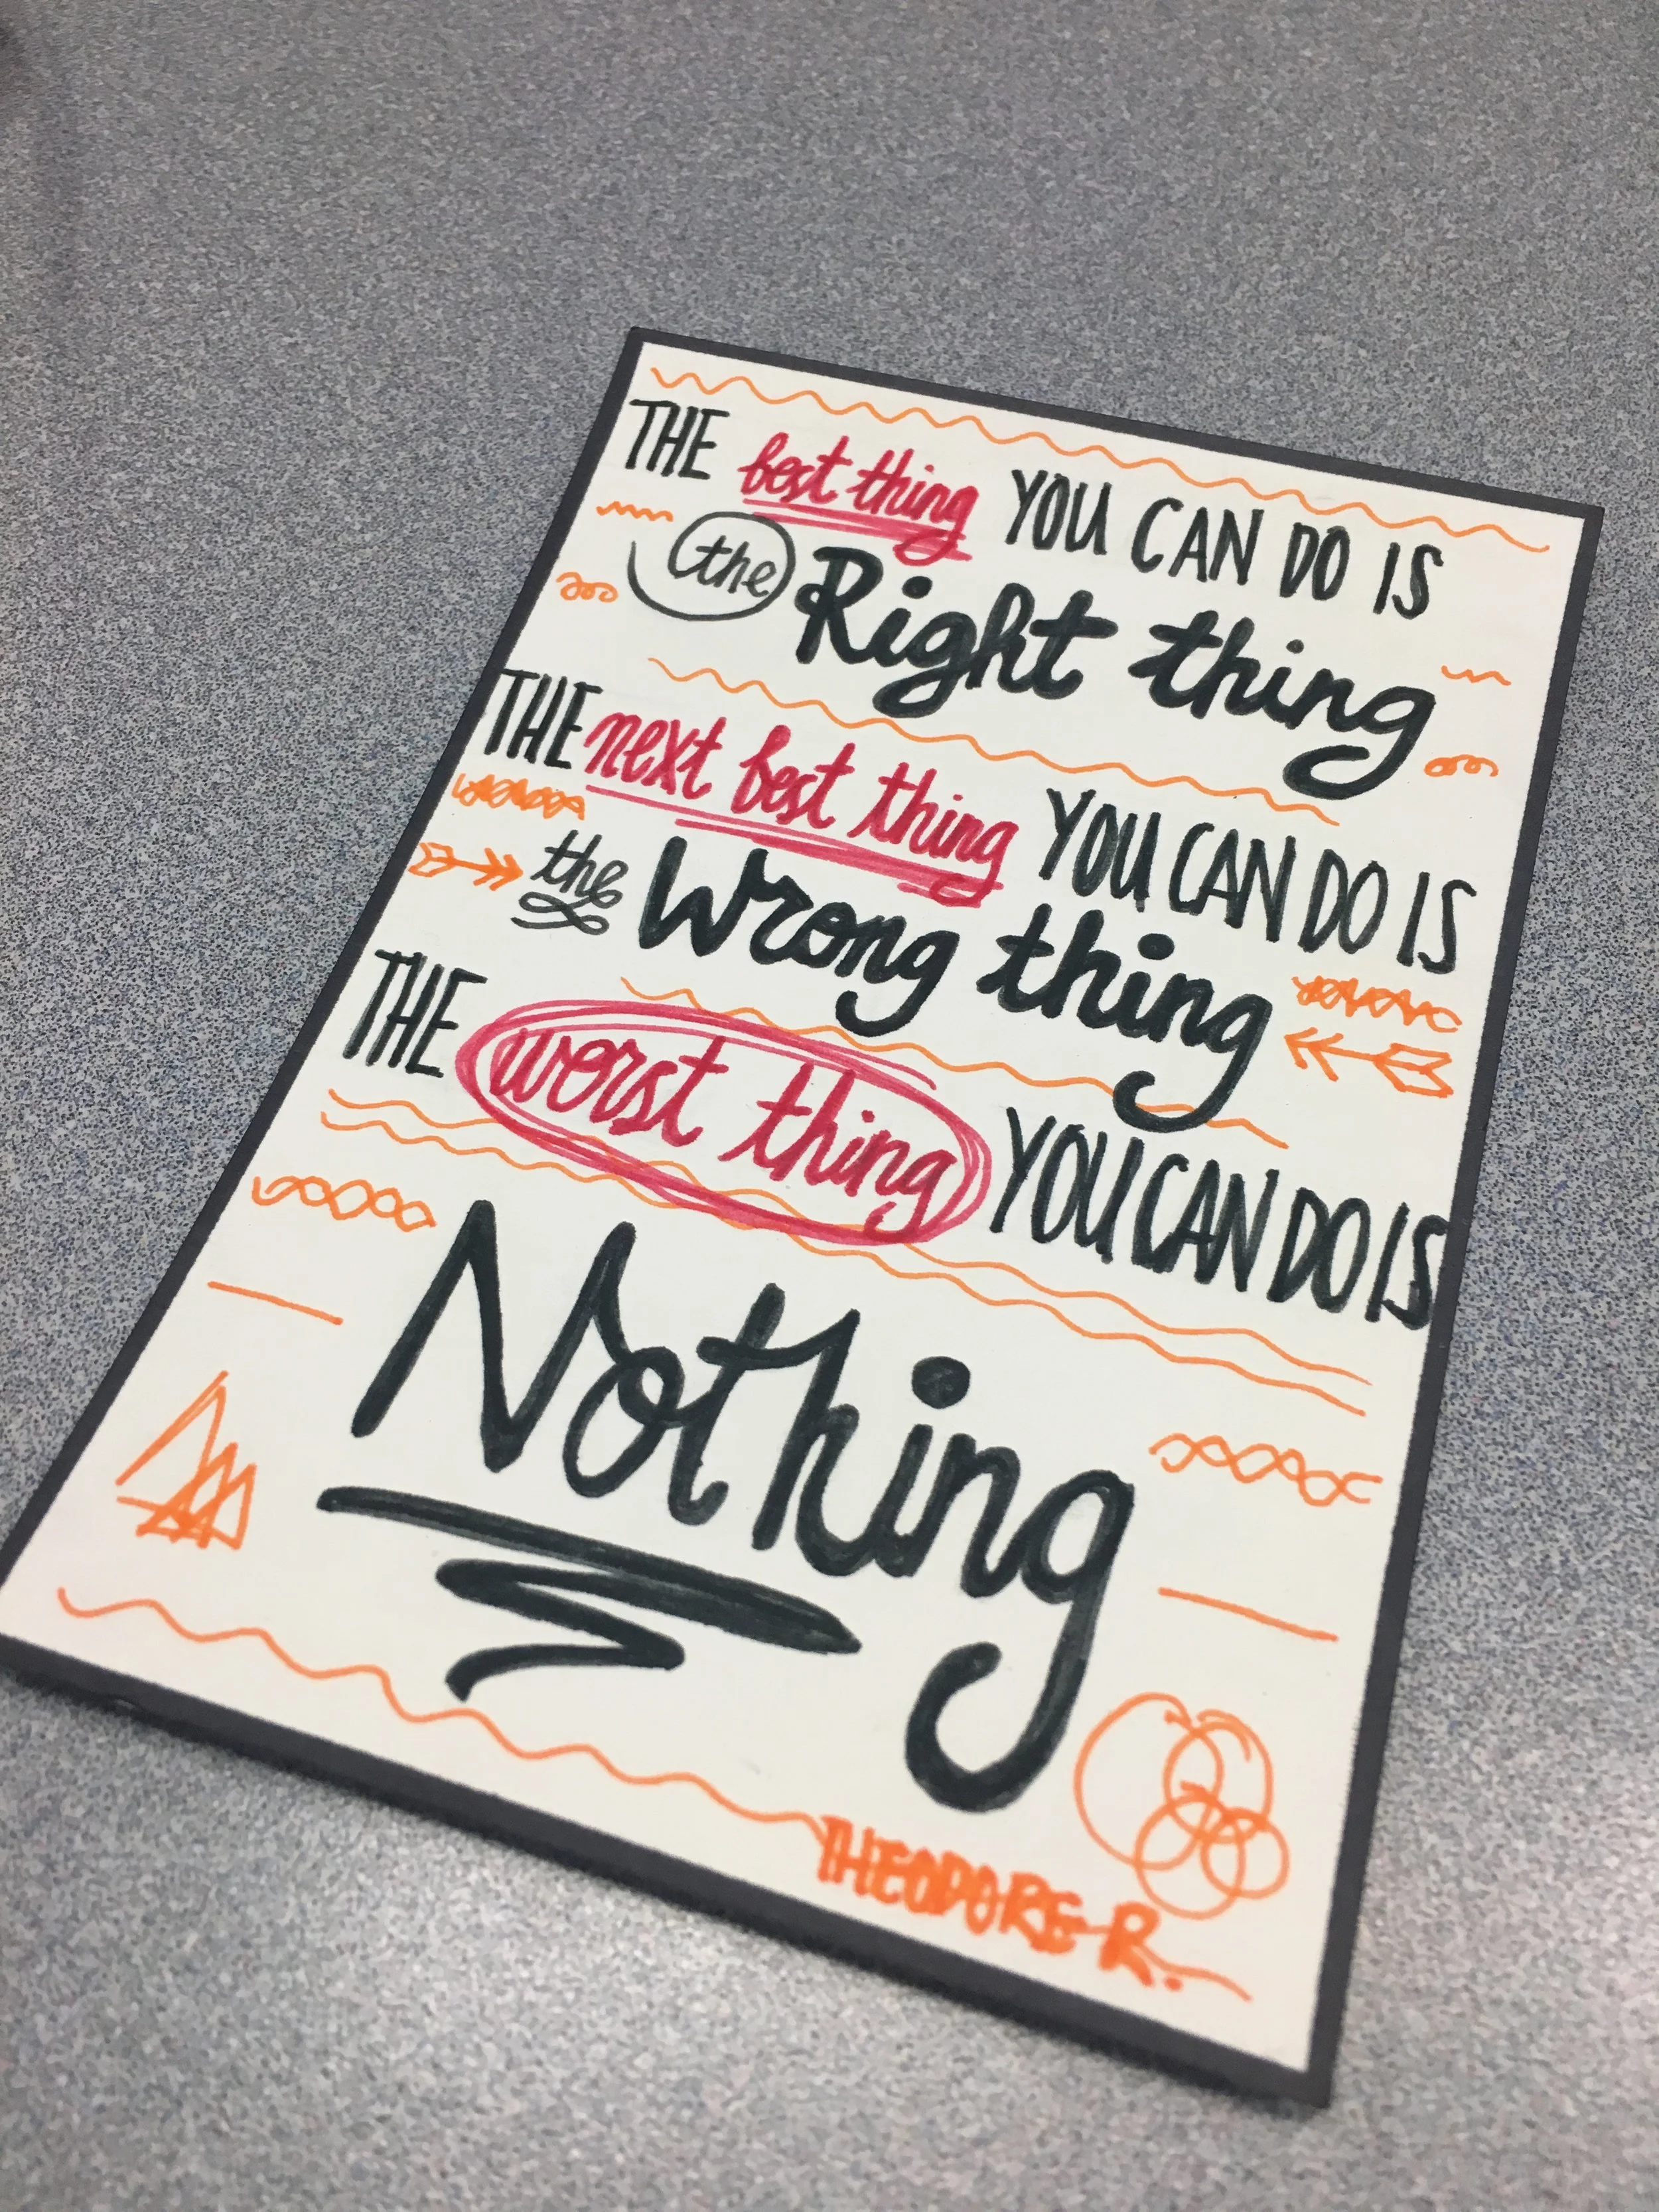 THE best thing YOU CAN DO IS
the Right thing
THE next best thing YOU CAN DO IS
the Wrong thing
THE worst thing YOU CAN DO IS
Nothing
THEODORE R.